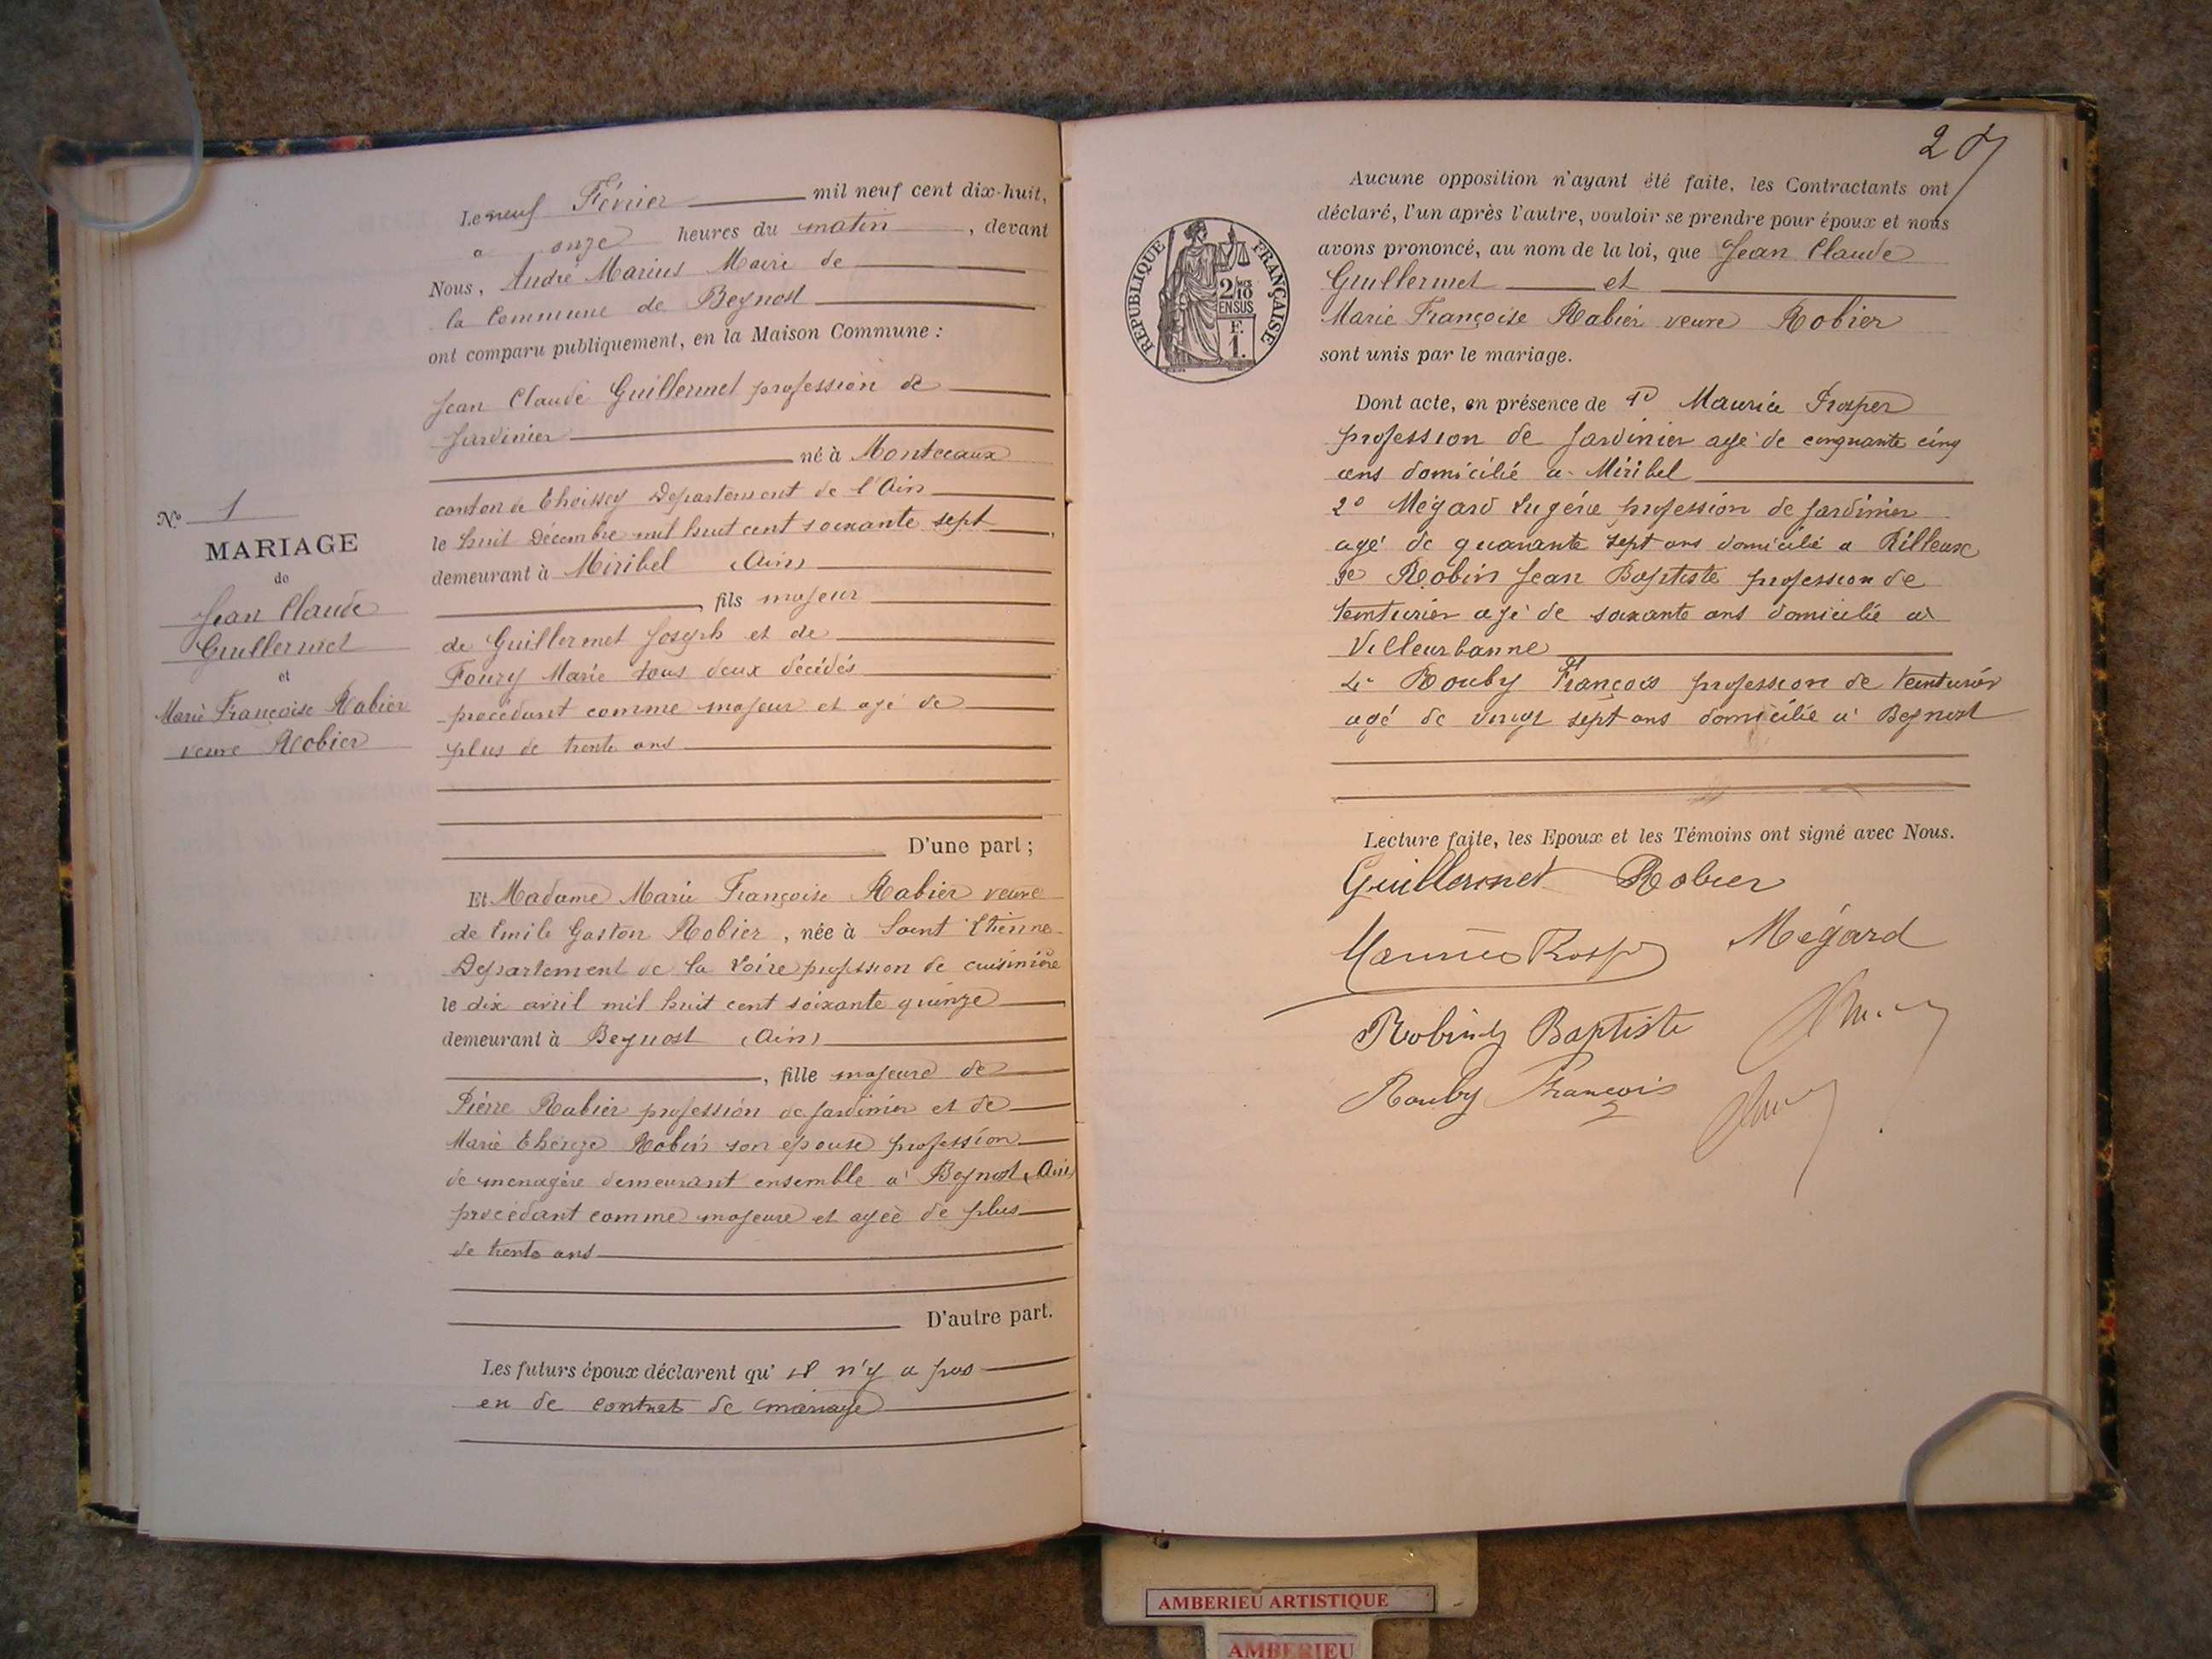 Le neuf Février mil neuf cent dix-huit,
a onze heures du matin, devant
Nous, André Marius Maire de
la Commune de Beynost
ont comparu publiquement, en la Maison Commune :
Jean Claude Guillermet profession de
Jardinier
né à Montceaux
canton de Thoissey Departement de l'Ain
le huit Décembre mil huit cent soixante sept,
demeurant à Miribel (Ain)
, fils majeur
de Guillermet Joseph et de
Foury Marie tous deux décédés
procédant comme majeur et agé de
plus de trente ans
D'une part ;
Et Madame Marie Françoise Rabier veuve
de Emile Gaston Robier, née à Saint Etienne
Departement de la Loire profession de cuisinière
le dix avril mil huit cent soixante quinze
demeurant à Beynost (Ain)
, fille majeure de
Pierre Rabier profession de jardinier et de
Marie Thérèze Robin son épouse profession
de menagère demeurant ensemble a' Beynost (Ain)
procédant comme majeure et agée de plus
de trente ans
D'autre part.
Les futurs époux déclarent qu' il n'y a pas
eu de contrat de mariage
N° 1
MARIAGE
de
Jean Claude
Guillermet
et
Marie Françoise Rabier
veuve Robier
Aucune opposition n'ayant été faite, les Contractants ont
déclaré, l'un après l'autre, vouloir se prendre pour époux et nous
avons prononcé, au nom de la loi, que Jean Claude
Guillermet et
Marie Françoise Rabier veuve Robier
sont unis par le mariage.
Dont acte, en présence de 1° Maurice Prosper
profession de Jardinier agé de cinquante cinq
ans domicilié a Miribel
2° Mégard Eugène profession de jardinier
agé de quarante sept ans domicilié a Rilleux
3e Robin Jean Baptiste profession de
teinturier agé de soixante ans domicilié a
Villeurbanne
4e Rouby François profession de teinturier
agé de vingt sept ans domicilié a' Beynost
Lecture faite, les Epoux et les Témoins ont signé avec Nous.
Guillermet Robier
Maurice Prosper Mégard
Robin Baptiste
Rouby François
REPUBLIQUE FRANÇAISE
2/10
EN SUS
F.
1.
AMBERIEU ARTISTIQUE
AMBERIEU